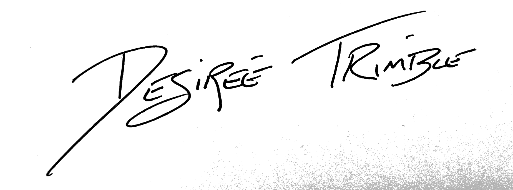 Desireé Trimble